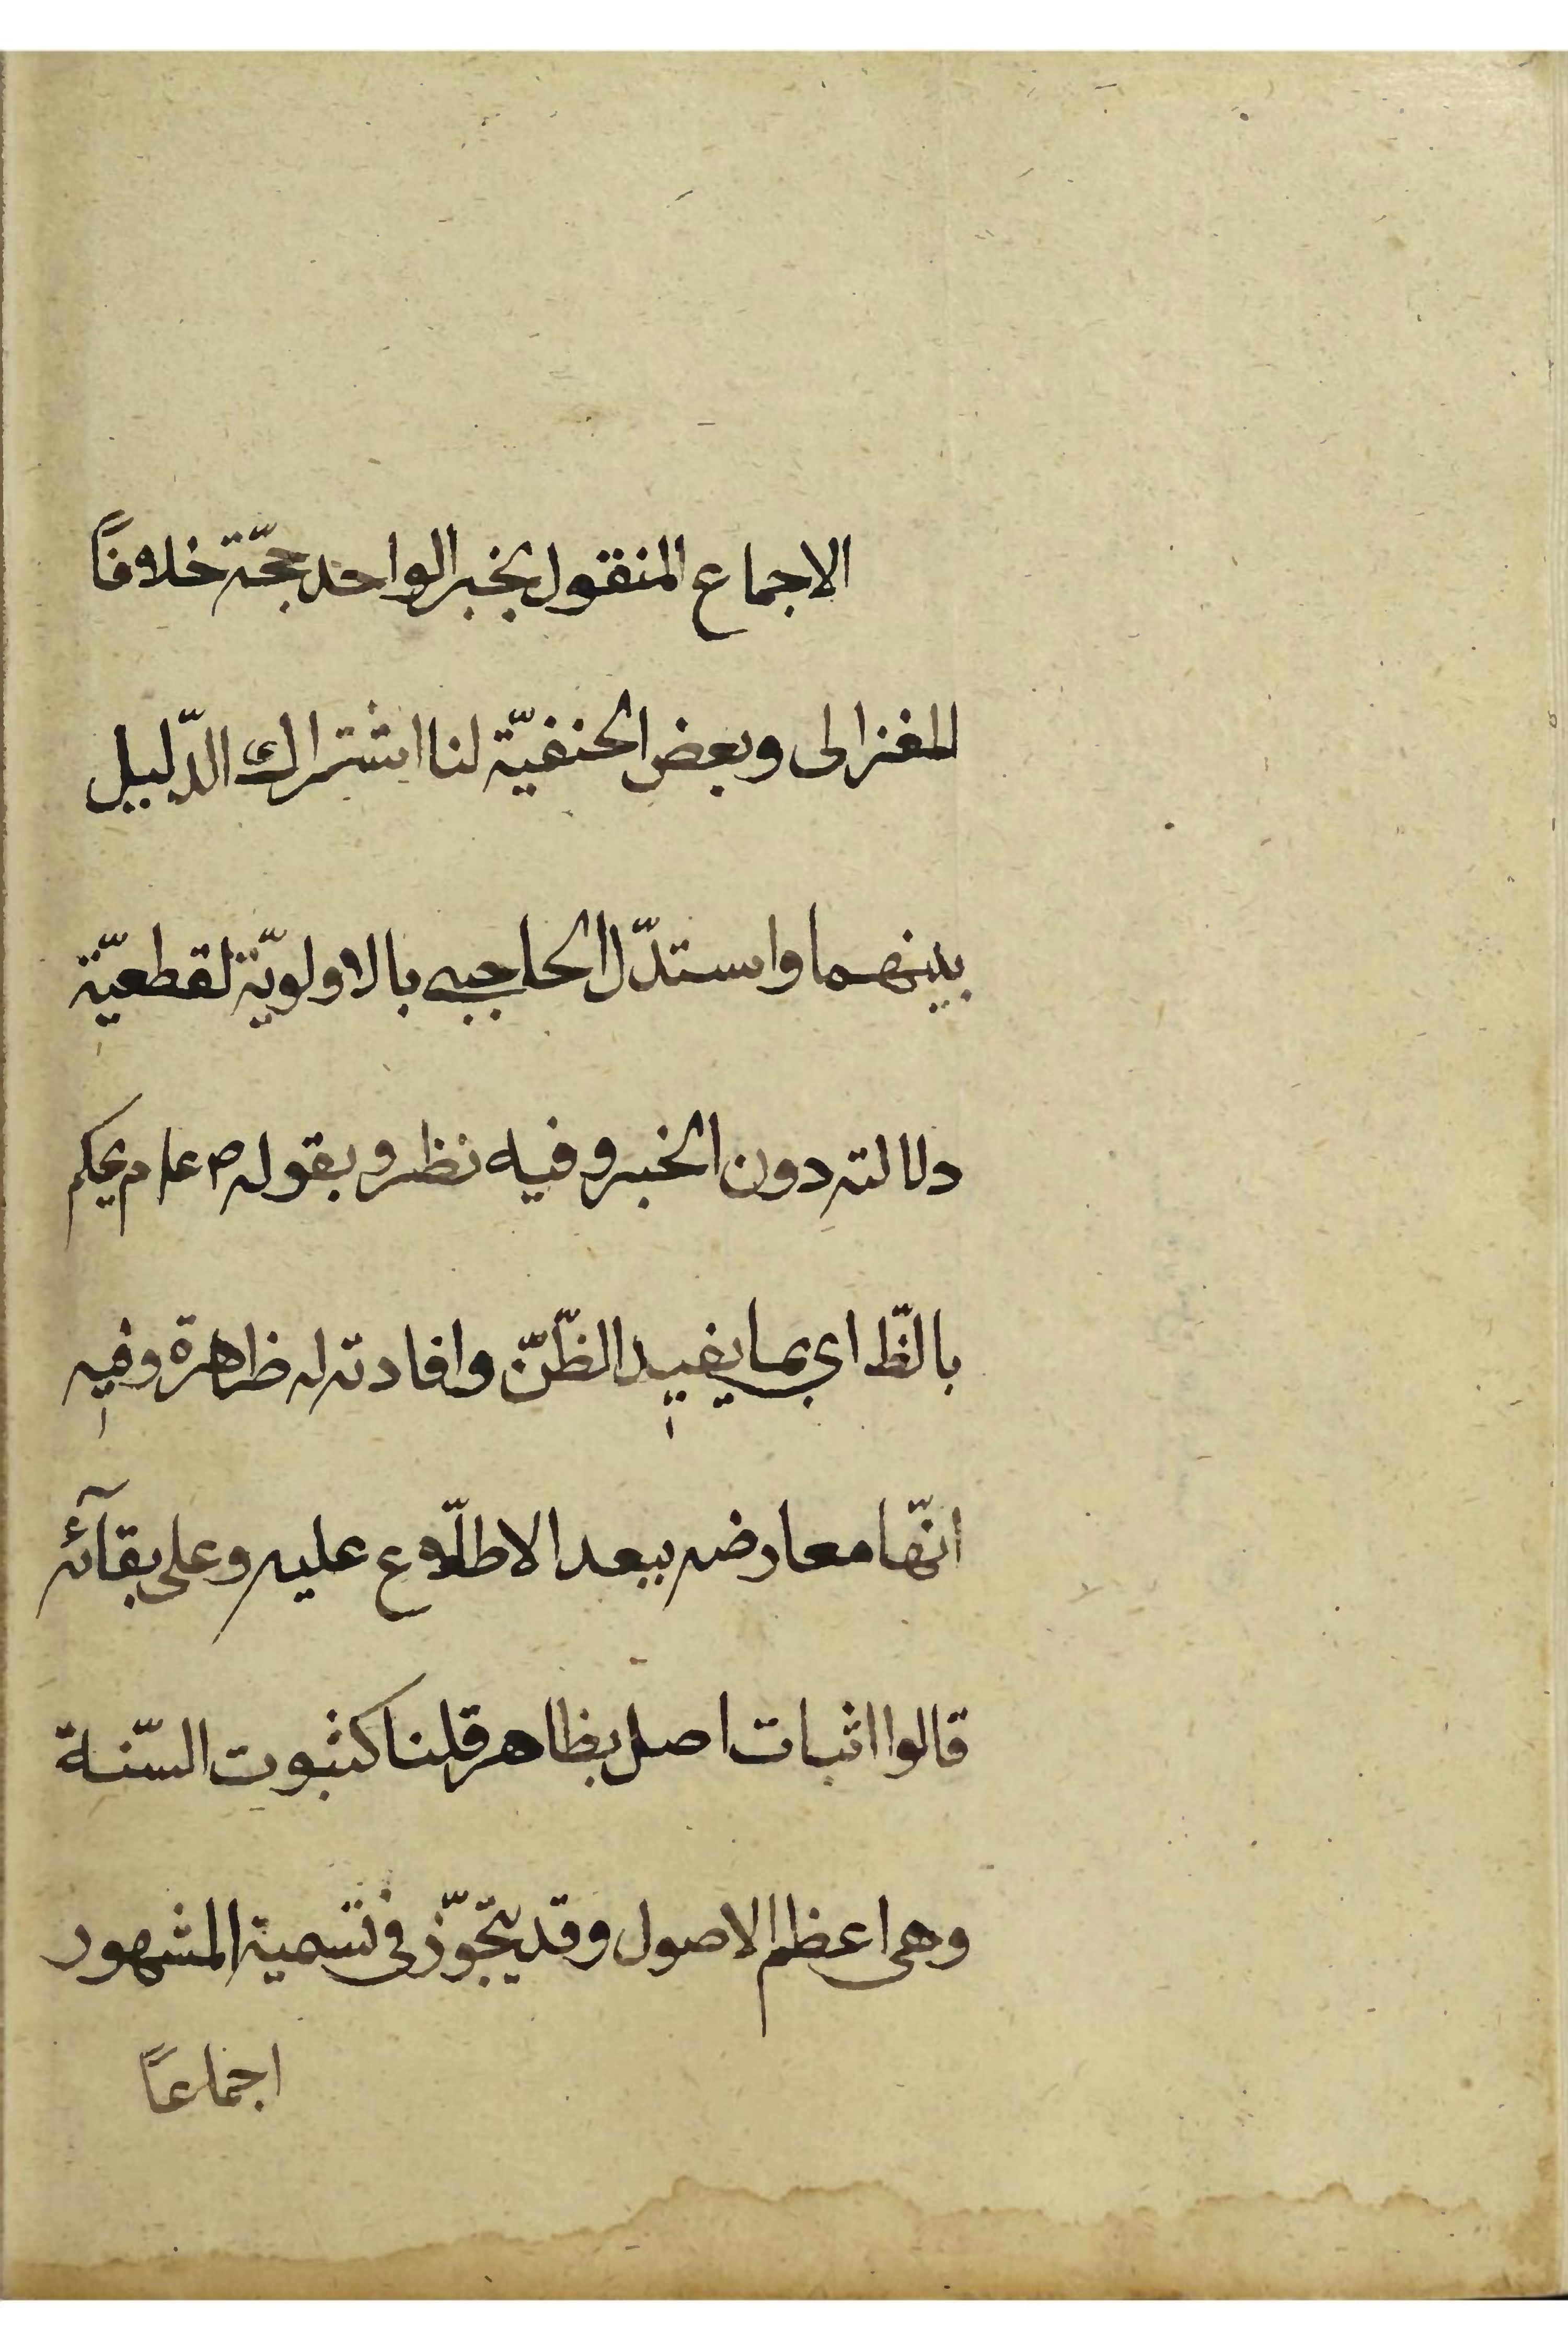 الاجماع المنقول بخبر الواحد حجّة خلافاً
للغزالى وبعض الحنفيّة لنا اشتراك الدّليل
بينهما واستدّل الحاجبى بالاولويّة لقطعيّة
دلالته دون الخبر وفيه نظر وبقوله ص ع م يحكم
بالظّ اي بما يفيد الظّنّ وافادته له ظاهرة وفيه
انّها معارضه ببعد الاطلّاع عليه وعلى بقآئه
قالوا اثبات اصل بظاهر قلنا كثبوت السّنة
وهى اعظم الاصول وقد يتجّوّز فى تسمية المشهور
اجماعاً